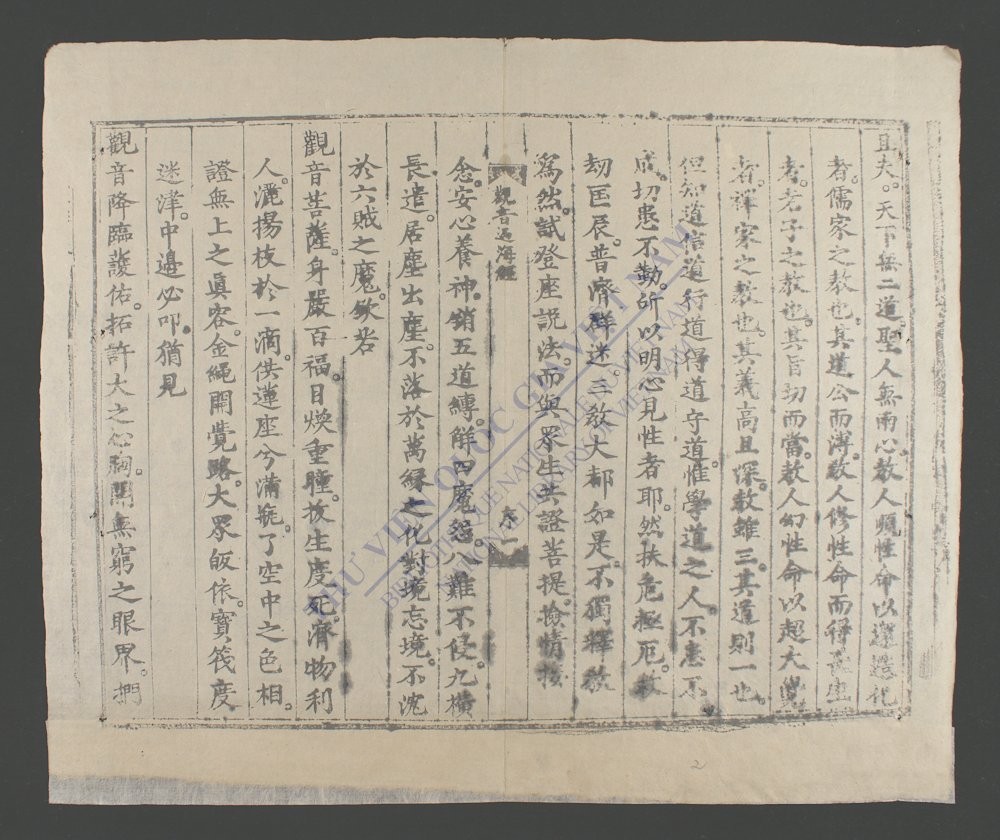 且夫。天下無二道。聖人無兩心。教人順性命以還造化
者。儒家之教也。其道公而溥。教人修性命而得長生
者。老子之教也。其旨切而當。教人幻性命以超大覺
者。禪家之教也。其義高且深。教雖三。其道則一也。
但知道信道行道得道守道。惟學道之人。不患不
成。切患不勤。所以明心見性者耶。然扶危拯厄。救
劫匡辰。普濟群迷。三教大都如是。不獨釋教
爲然。試登座説法。而與眾生共證菩提。撿情
觀音過海經
序一
念。安心養神。銷五道縛。解四魔怨。八難不侵。九橫
長遣。居塵出塵。不落於萬緣之化。對境忘境。不沈
於六賊之魔。欽若
觀音菩薩。身嚴百福。目煥重瞳。放生度死。濟物利
人。灑揚枝於一滴。供蓮座兮滿瓶。了空中之色相。
證無上之真容。金繩開覺路。大眾皈依。寶筏度
迷津。中邊必叩。猶見
觀音降臨護佑。拓許大之心胸。開無窮之眼界。捫
THƯ VIỆN QUỐC GIA VIỆT NAM
BIBLIOTHÈQUE NATIONALE DU VIETNAM
NATIONAL LIBRARY OF VIETNAM
2